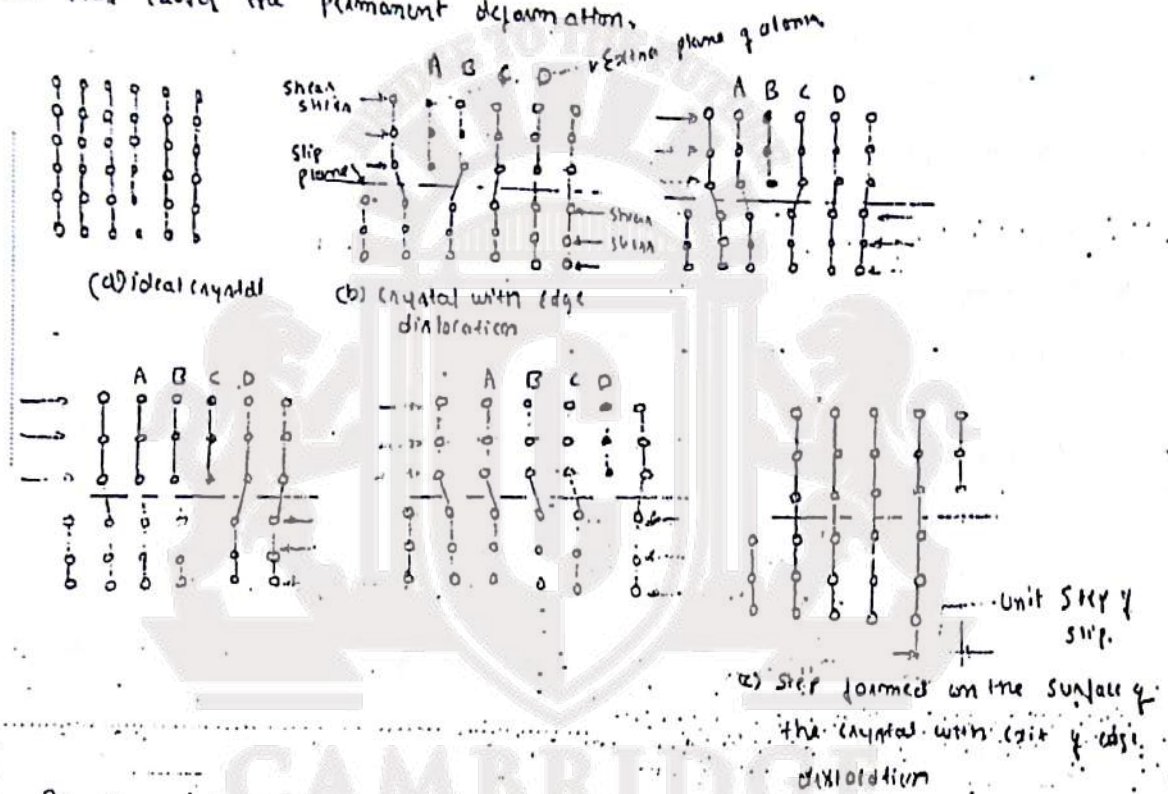 the permanent deformation.
A B C D Extra plane of atoms
shear
stress
slip
plane
shear
stress
A B C D
(a) ideal crystal
(b) crystal with edge
dislocation
A B C D
A B C D
unit step of
slip.
(c) step formed on the surface of
the crystal with exit of edge
dislocation
CAMBRIDGE